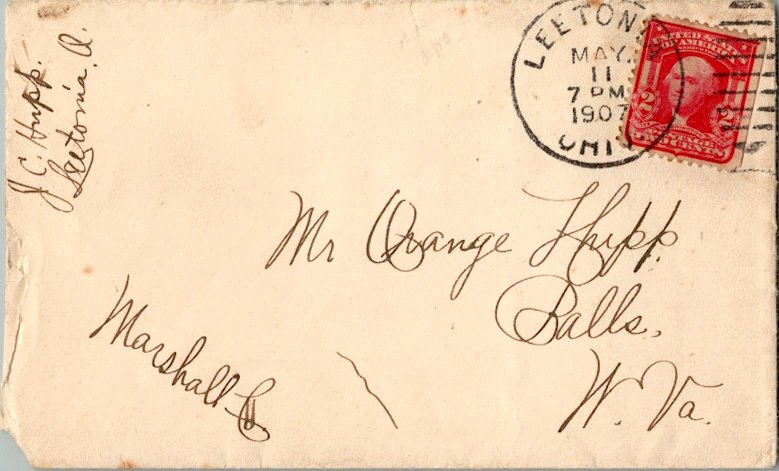 J. C. Hupp.
Leetonia, O.
LEETONIA
MAY.
11
7 PM
1907
OHIO
UNITED STATES
OF AMERICA
2 2
POSTAGE
TWO CENTS
Mr Orange Hupp.
Balls,
W. Va.
Marshall Co